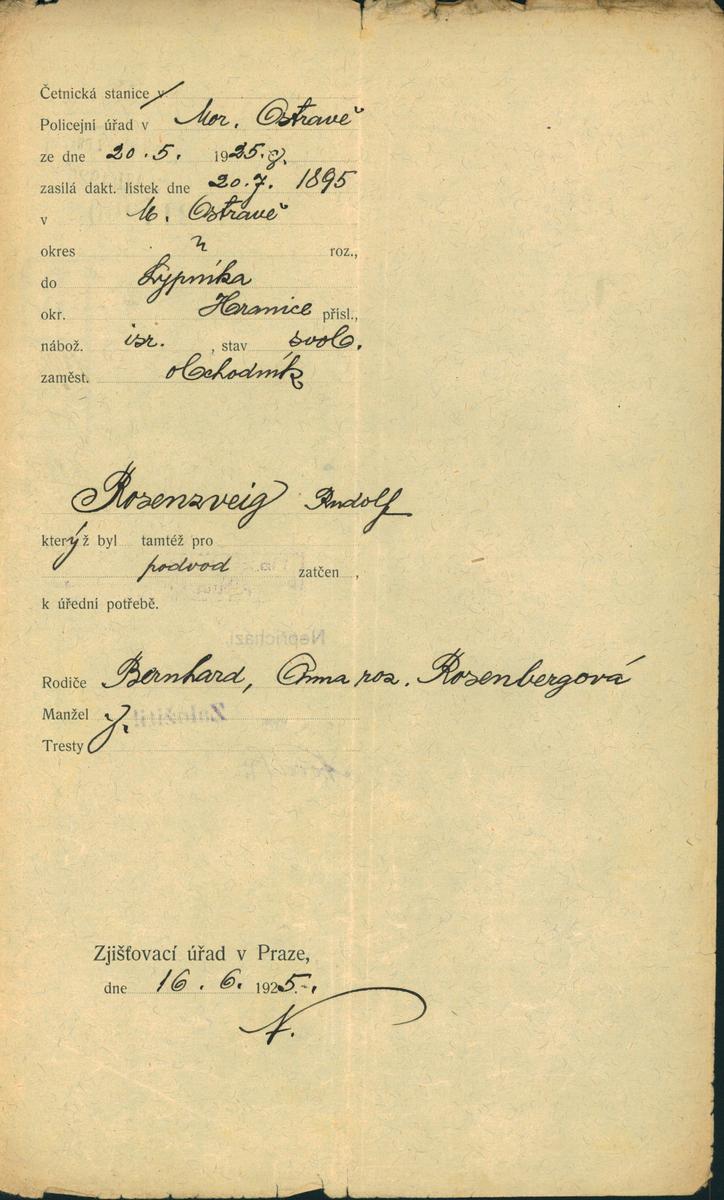 Četnická stanice v
Policejní úřad v Mor. Ostravě
ze dne 20.5. 1925.
zasílá dakt. lístek dne 20.7. 1895
v M. Ostravě
okres roz.,
do Lypníka
okr. Hranice přísl.,
nábož. isr. , stav svob.
zaměst. obchodník
Rosenzveig Rudolf
kterýž byl tamtéž pro
podvod zatčen ,
k úřední potřebě.
Nepřichází.
Rodiče Bernhard, Anna roz. Rosenbergová
Manžel
Založiti!
Tresty
Zjišťovací úřad v Praze,
dne 16. 6. 1925.